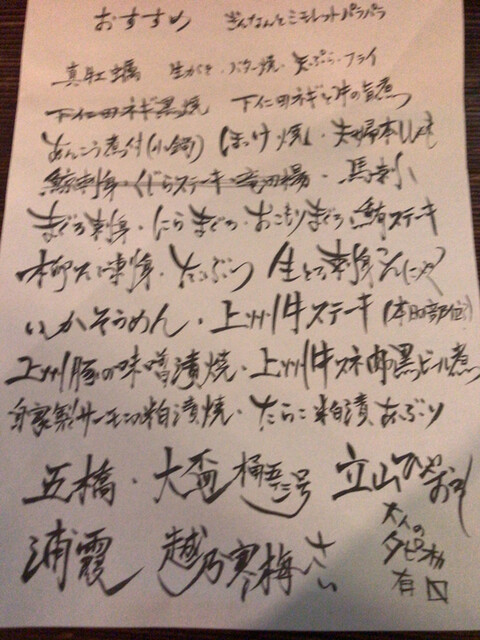 おすすめ ぎんなんとミモレットパラパラ
真牡蠣 生がき・バター焼・天ぷら・フライ
下仁田ネギ黒焼 下仁田ネギと牛の旨煮
あんこう煮付(小鍋) ほっけ焼・夫婦本ししゃも
鯨刺身・くじらステーキ・竜田揚・馬刺し
まぐろ刺身・にらまぐろ・おこもりまぐろ・鮪ステーキ
刺身・天ぷら 生とろ刺身こんにゃく
いかそうめん・上州牛ステーキ(本日の部位)
上州豚の味噌漬焼・上州牛スネ肉黒ビール煮
自家製サーモンの粕漬焼・たらこ粕漬あぶり
五橋・大盃 桶 号 立山ひやおろし
浦霞 越乃寒梅
大人の
タピオカ
有